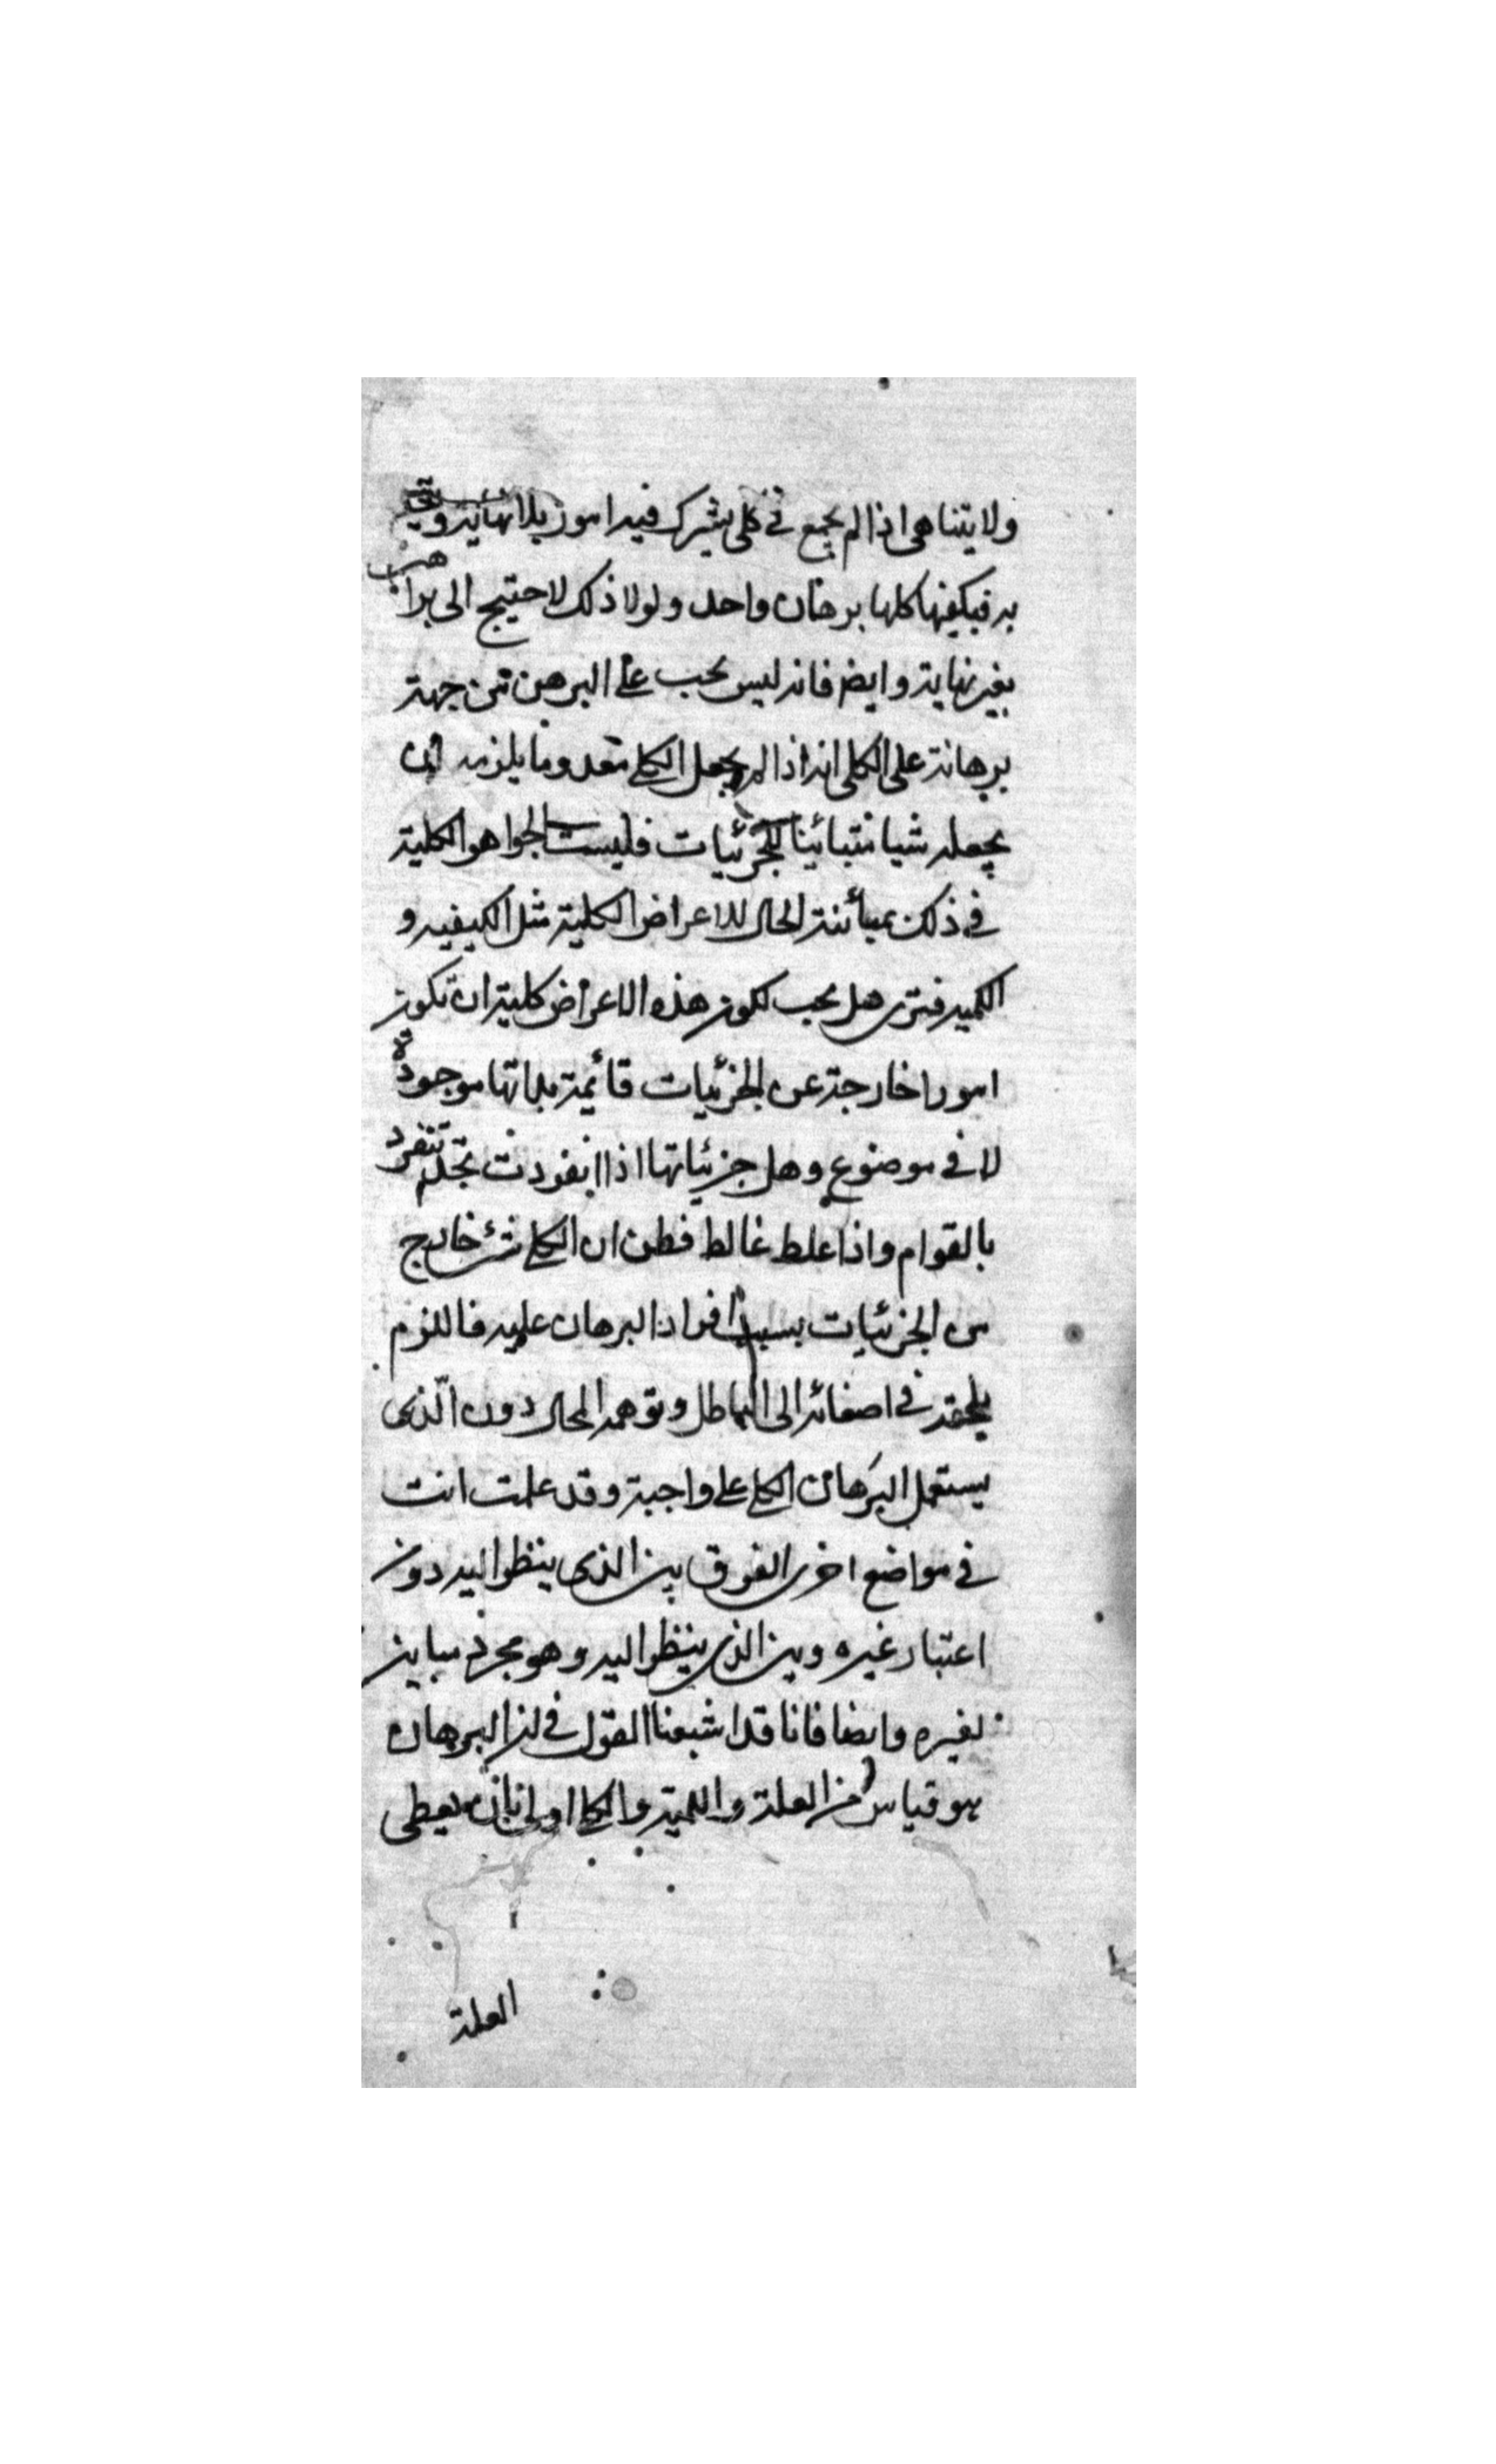 ولا يتناهى اذا لم يجمع فى كلى يشترك فيه امور بلا نهاية ويتحد
به فيكفيها كلها برهان واحد ولولا ذلك لاحتيج الى براهين
بغير نهاية وايضا فانه ليس يجب على المبرهن من جهة
برهانه على الكلى انه اذا لم يجعل الكلى معدوما يلزمه ان
يجعله شيا متبائينا للجزئيات فليست الجواهر الكلية
فى ذلك بمبائنة الحال للاعراض الكلية مثل الكيفيه و
الكميه فترى هل يجب لكون هذه الاعراض كلية ان تكون
امورا خارجة عن الجزئيات قائمة بذاتها موجودة
لا فى موضوع وهل جزئياتها اذا انفردت تجدلم تنفرد
بالقوام واذا غلط غالط فظن ان الكلى شئ خارج
من الجزئيات بسبب افراد البرهان عليه فاللزم
يلحقه فى اصغائه الى الباطل وتوهمه المحال دون الّذى
يستعمل البرهان الكلى على واجبة وقد علمت انت
فى مواضع اخرى الفرق بين الذى ينظر اليه دون
اعتبار غيره وبين الذى ينظر اليه وهو مجرد مباين
لغيره وايضا فانا قد اشبعنا القول فى ان البرهان
هو قياس من العلة واللمية والكلى اولى بان يعطى
العلة